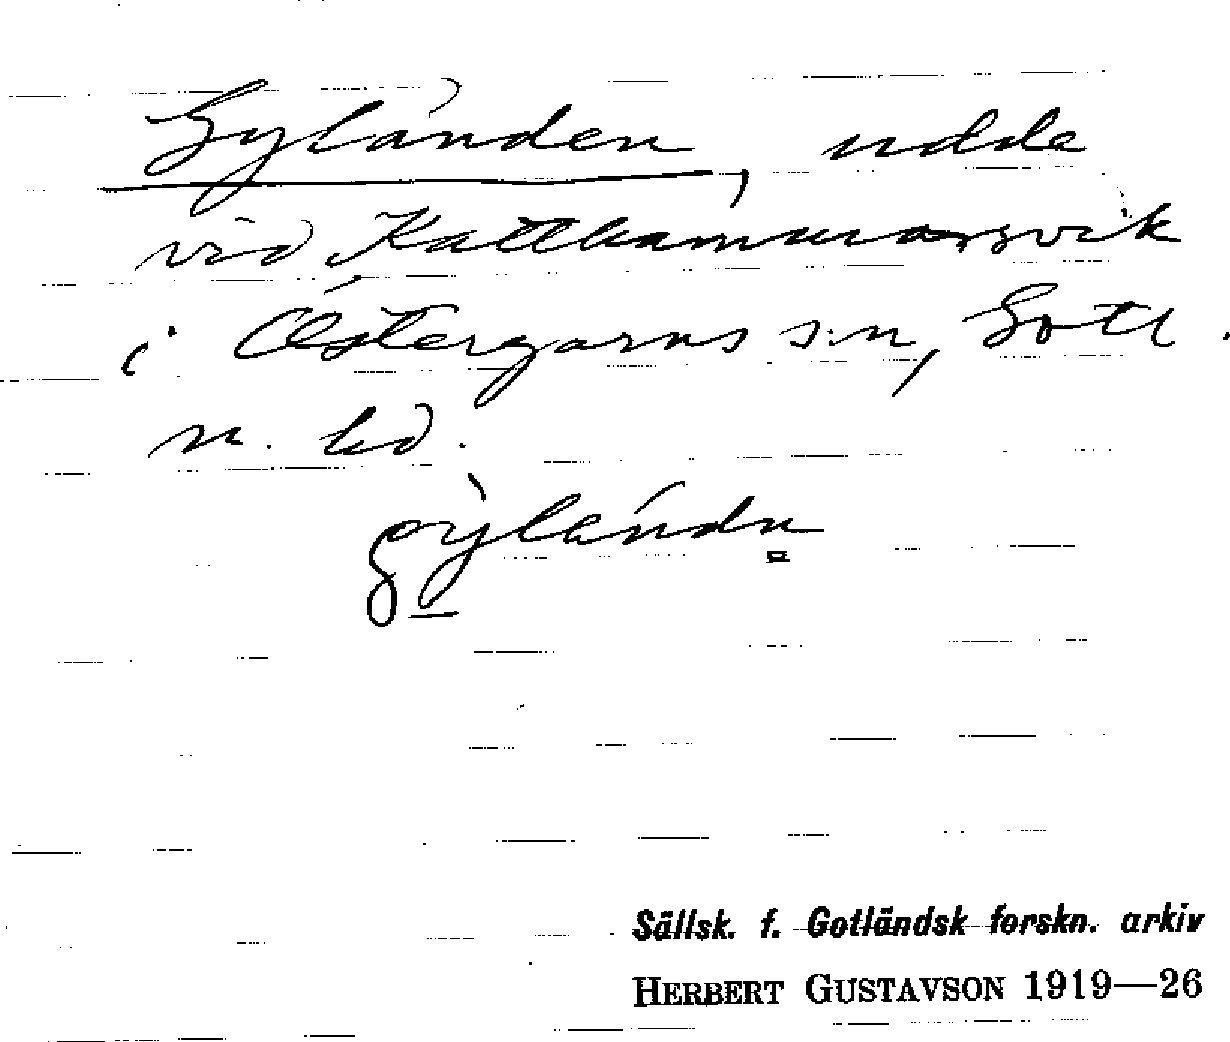 Gylanden, udde
vid Katthammarsvik
i Östergarns s:n, Gotl.
n. hd.
gỳlándn
Sällsk. f. Gotländsk forskn. arkiv
HERBERT GUSTAVSON 1919—26